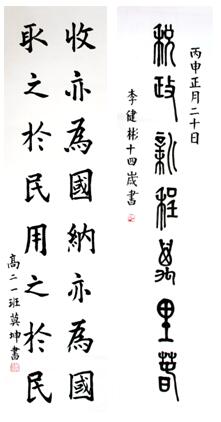 丙申正月二十日
税政新程萬里春
李健彬十四歲書
收亦為國納亦為國
取之於民用之於民
高二一班坤書